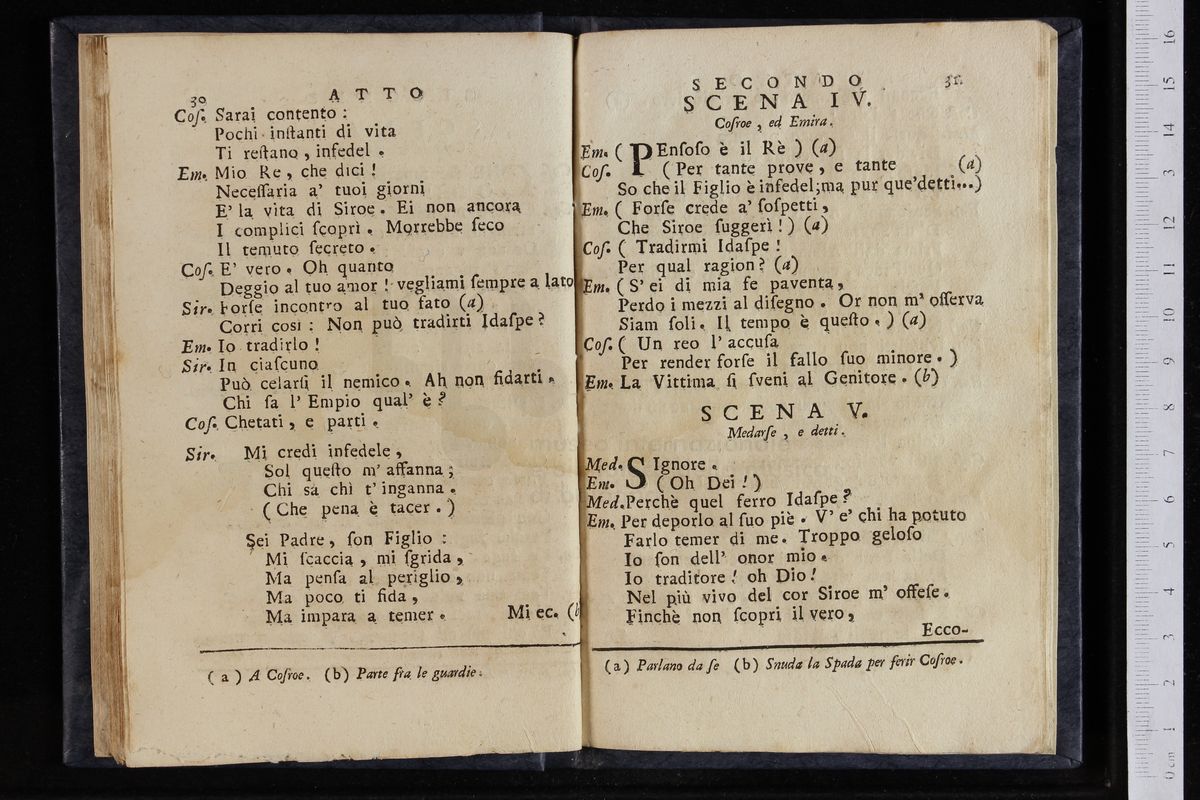 30
ATTO
Coſ. Sarai contento :
Pochi inſtanti di vita
Ti reſtano , infedel .
Em. Mio Re, che dici !
Neceſſaria a' tuoi giorni
E' la vita di Siroe. Ei non ancora
I complici ſcoprì . Morrebbe ſeco
Il temuto ſecreto .
Coſ. E' vero . Oh quanto
Deggio al tuo amor ! vegliami ſempre a lato
Sir. Forſe incontro al tuo fato (a)
Corri così : Non può tradirti Idaſpe?
Em. Io tradirlo !
Sir. In ciaſcuno
Può celarſi il nemico. Ah non fidarti.
Chi ſa l' Empio qual' è ?
Coſ. Chetati, e parti .
Sir. Mi credi infedele ,
Sol queſto m' affanna ;
Chi sa chì t' inganna .
( Che pena è tacer . )
Sei Padre, ſon Figlio :
Mi ſcaccia , mi ſgrida ,
Ma penſa al periglio ,
Ma poco ti fida ,
Ma impara a temer . Mi ec. (b
( a ) A Coſroe. (b) Parte fra le guardie.
SECONDO 31.
SCENA IV.
Coſroe , ed Emira.
Em. ( PEnſoſo è il Rè ) (a)
Coſ. ( Per tante prove, e tante (a)
So che il Figlio è infedel;ma pur que'detti...)
Em. ( Forſe crede a' ſoſpetti,
Che Siroe ſuggerì ! ) (a)
Coſ. ( Tradirmi Idaſpe !
Per qual ragion? (a)
Em. ( S' ei di mia fe paventa,
Perdo i mezzi al diſegno . Or non m' oſſerva
Siam ſoli. Il tempo è queſto. ) (a)
Coſ. ( Un reo l' accuſa
Per render forſe il fallo ſuo minore. )
Em. La Vittima ſi ſveni al Genitore . (b)
SCENA V.
Medarſe , e detti.
Med. SIgnore .
Em. ( Oh Dei ! )
Med.Perchè quel ferro Idaſpe?
Em. Per deporlo al ſuo piè . V' e' chi ha potuto
Farlo temer di me. Troppo geloſo
Io ſon dell' onor mio.
Io traditore ! oh Dio!
Nel più vivo del cor Siroe m' offeſe.
Finchè non ſcopri il vero,
Ecco-
(a) Parlano da ſe (b) Snuda la Spada per ferir Coſroe.
museo internazionale
16
15
14
13
12
11
10
9
8
7
6
5
4
3
2
1
0 cm